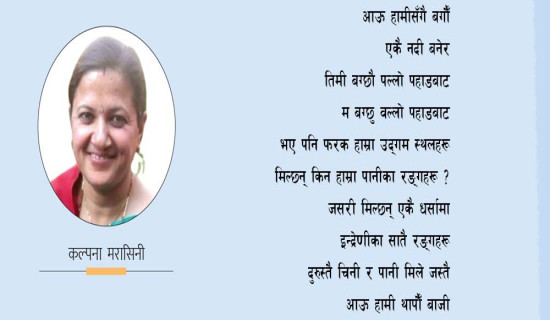 आऊ हामीसँगै बगौँ
एकै नदी बनेर
तिमी बग्छौ पल्लो पहाडबाट
म बग्छु वल्लो पहाडबाट
भए पनि फरक हाम्रा उद्‌गम स्थलहरू
मिल्छन् किन हाम्रा पानीका रङ्गहरू ?
जसरी मिल्छन् एकै धर्सामा
इन्द्रेणीका सातै रङ्गहरू
दुरुस्तै चिनी र पानी मिले जस्तै
आऊ हामी थापौँ बाजी
कल्पना मरासिनी